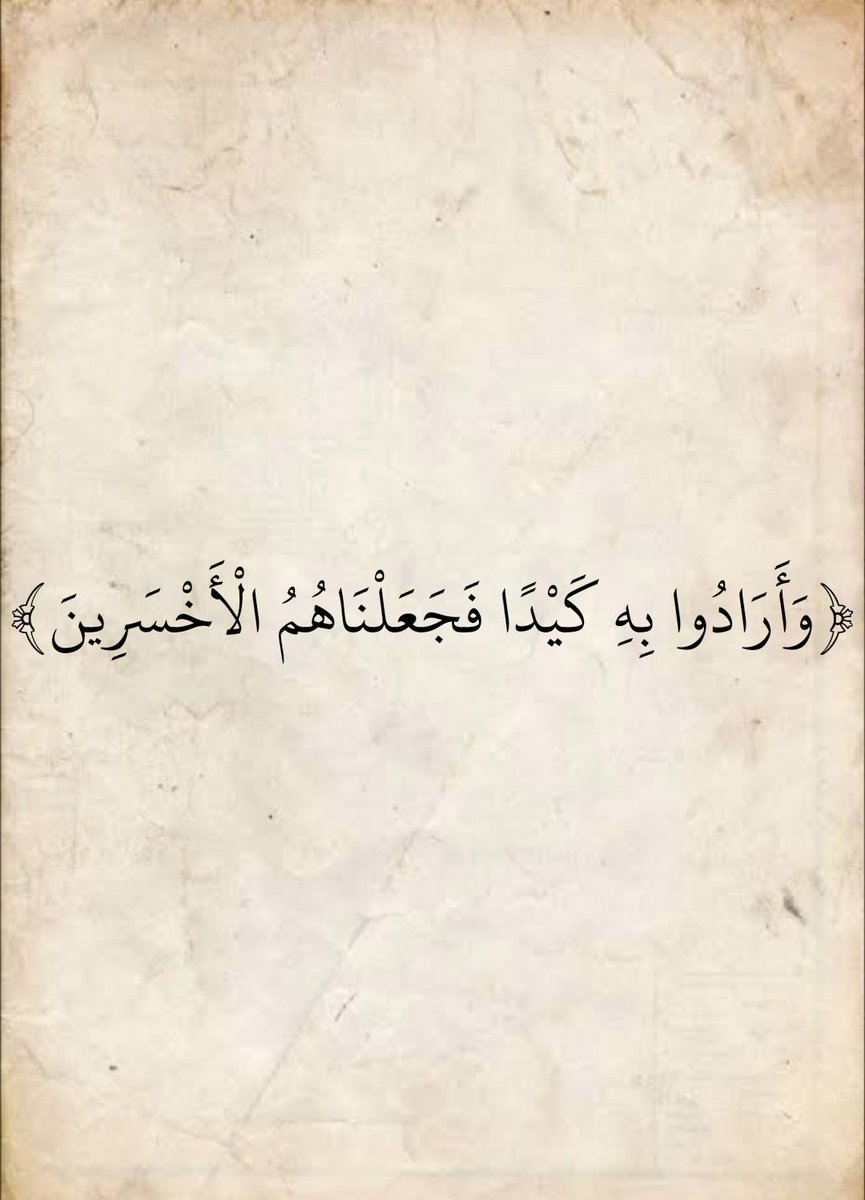 ﴿وَأَرَادُوا بِهِ كَيْدًا فَجَعَلْنَاهُمُ الْأَخْسَرِينَ﴾